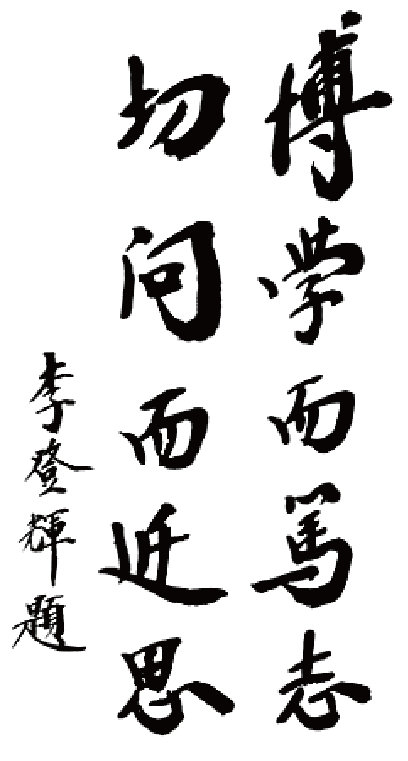 博学而篤志
切问而近思
李登輝題